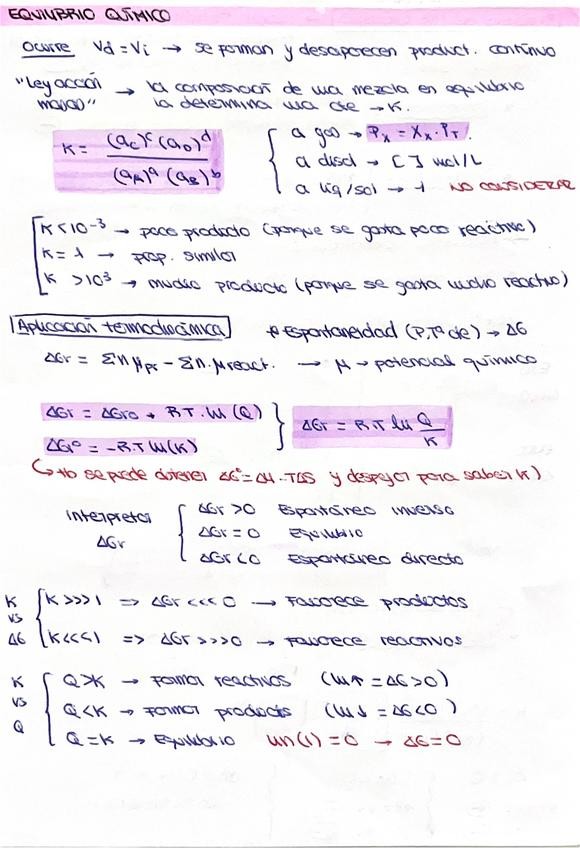 EQUILIBRIO QUÍMICO
Ocurre Vd = Vi → se forman y desaparecen product. contínuo
"Ley acción masas" → la composición de una mezcla en equilibrio
la determina una cte → K.
K = (aC)^c (aD)^d / (aA)^a (aB)^b
a gas → Px = Xx · PT
a disol → [ ] mol/L
a liq/sol → 1 NO CONSIDERAR
K < 10^-3 → poco producto (porque se gasta poco reactivo)
K = 1 → prop. similar
K > 10^3 → mucho producto (porque se gasta mucho reactivo)
Aplicación termodinámica * espontaneidad (P, Tª cte) → ΔG
ΔGr = Σn μpr − Σn · μreact. → μ → potencial químico
ΔGr = ΔGro + R.T · ln (Q)
ΔGº = −R.T ln(K)
ΔGr = R.T ln Q/K
(→ tb se puede obtener ΔGº = ΔH − TΔS y despejar para saber K)
Interpretar ΔGr
ΔGr > 0 Espontáneo inverso
ΔGr = 0 Equilibrio
ΔGr < 0 Espontáneo directo
K vs ΔG
K >>> 1 => ΔGr <<< 0 → Favorece productos
K <<< 1 => ΔGr >>> 0 → Favorece reactivos
K vs Q
Q > K → Formar reactivos (ln ↑ = ΔG > 0)
Q < K → Formar products (ln ↓ = ΔG < 0)
Q = K → Equilibrio ln (1) = 0 → ΔG = 0